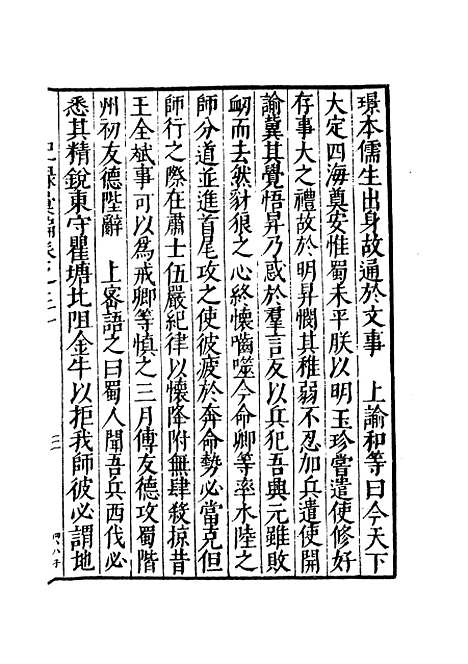 璟本儒生出身故通於文事　上諭和等曰今天下
大定四海奠安惟蜀未平朕以明玉珍嘗遣使修好
存事大之禮故於明昇憫其稚弱不忍加兵遣使開
諭冀其覺悟昇乃惑於羣言反以兵犯吾興元雖敗
衂而去然豺狼之心終懷嚙噬今命卿等率水陸之
師分道並進首尾攻之使彼疲於奔命勢必當克但
師行之際在肅士伍嚴紀律以懷降附無肆殺掠昔
王全斌事可以為戒卿等慎之三月傅友德攻蜀階
州初友德陛辭　上密語之曰蜀人聞吾兵西伐必
悉其精銳東守瞿塘北阻金牛以拒我師彼必謂地